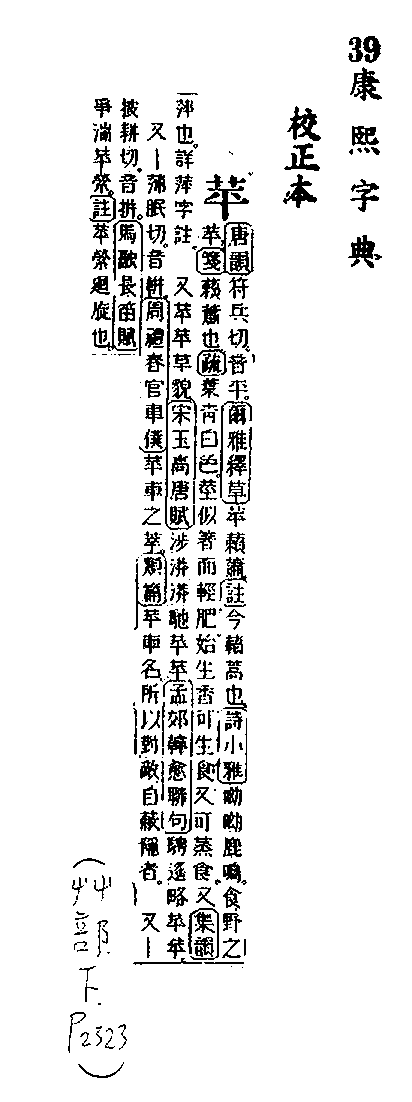 39康熙字典
校正本
苹
唐韻符兵切音平爾雅釋草苹藾蕭註今藾蒿也詩小雅呦呦鹿鳴食野之
苹箋藾蕭也疏葉青白色莖似箸而輕肥始生香可生食又可蒸食又集韻
萍也詳萍字註 又苹苹草貌宋玉高唐賦涉漭漭馳苹苹孟郊韓愈聯句騁遙略苹苹
又一蒲眠切音軿周禮春官車僕苹車之萃類篇苹車名所以對敵自蔽隱者 又一
披耕切音拼馬融長笛賦
爭湍苹縈註苹縈廻旋也
(艸部下P2323)